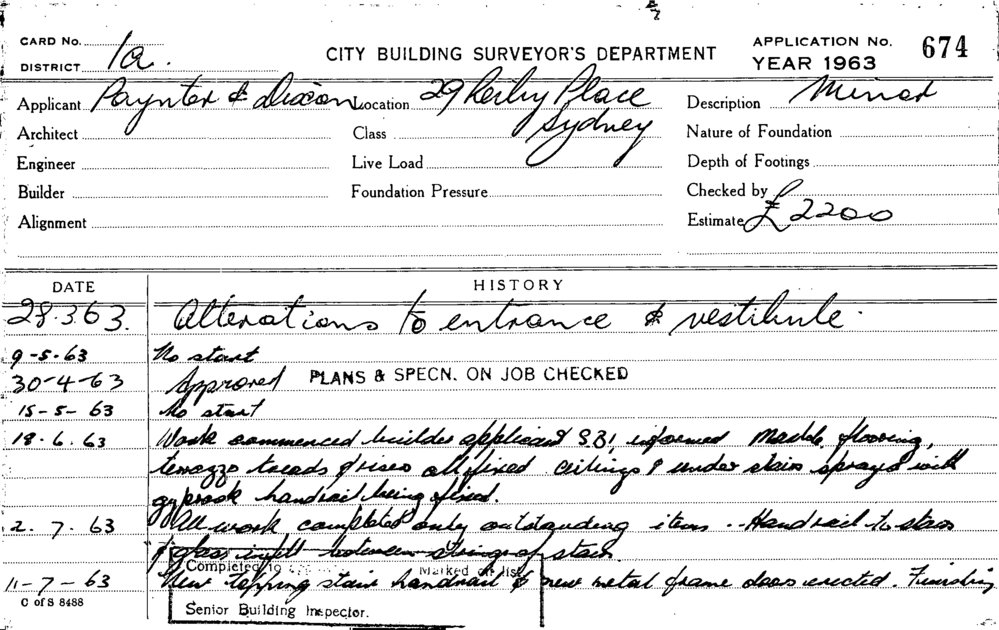 CARD No.
DISTRICT 1a.
CITY BUILDING SURVEYOR'S DEPARTMENT
APPLICATION No. 674
YEAR 1963
Applicant Paynter & Dixon Location 29 Reiby Place Sydney Description Minor
Architect Class Nature of Foundation
Engineer Live Load Depth of Footings
Builder Foundation Pressure Checked by
Alignment Estimate £2200
DATE HISTORY
28.3.63. Alterations to entrance & vestibule.
9-5-63 No start
30-4-63 Approved PLANS & SPECN. ON JOB CHECKED
15-5-63 No start
18.6.63 Work commenced builder applicant S.B! informed Marble flooring,
terrazzo treads & rises all fixed ceilings & under stairs sprayed with
gyprock handrail being fixed.
2.7.63 All work completed only outstanding item -- Handrail to stair
& glass infill between strings of stair.
Completed Marked off list
11-7-63 New topping stair handrail & new metal frame doors erected. Finishing
C of S 8488
Senior Building Inspector.